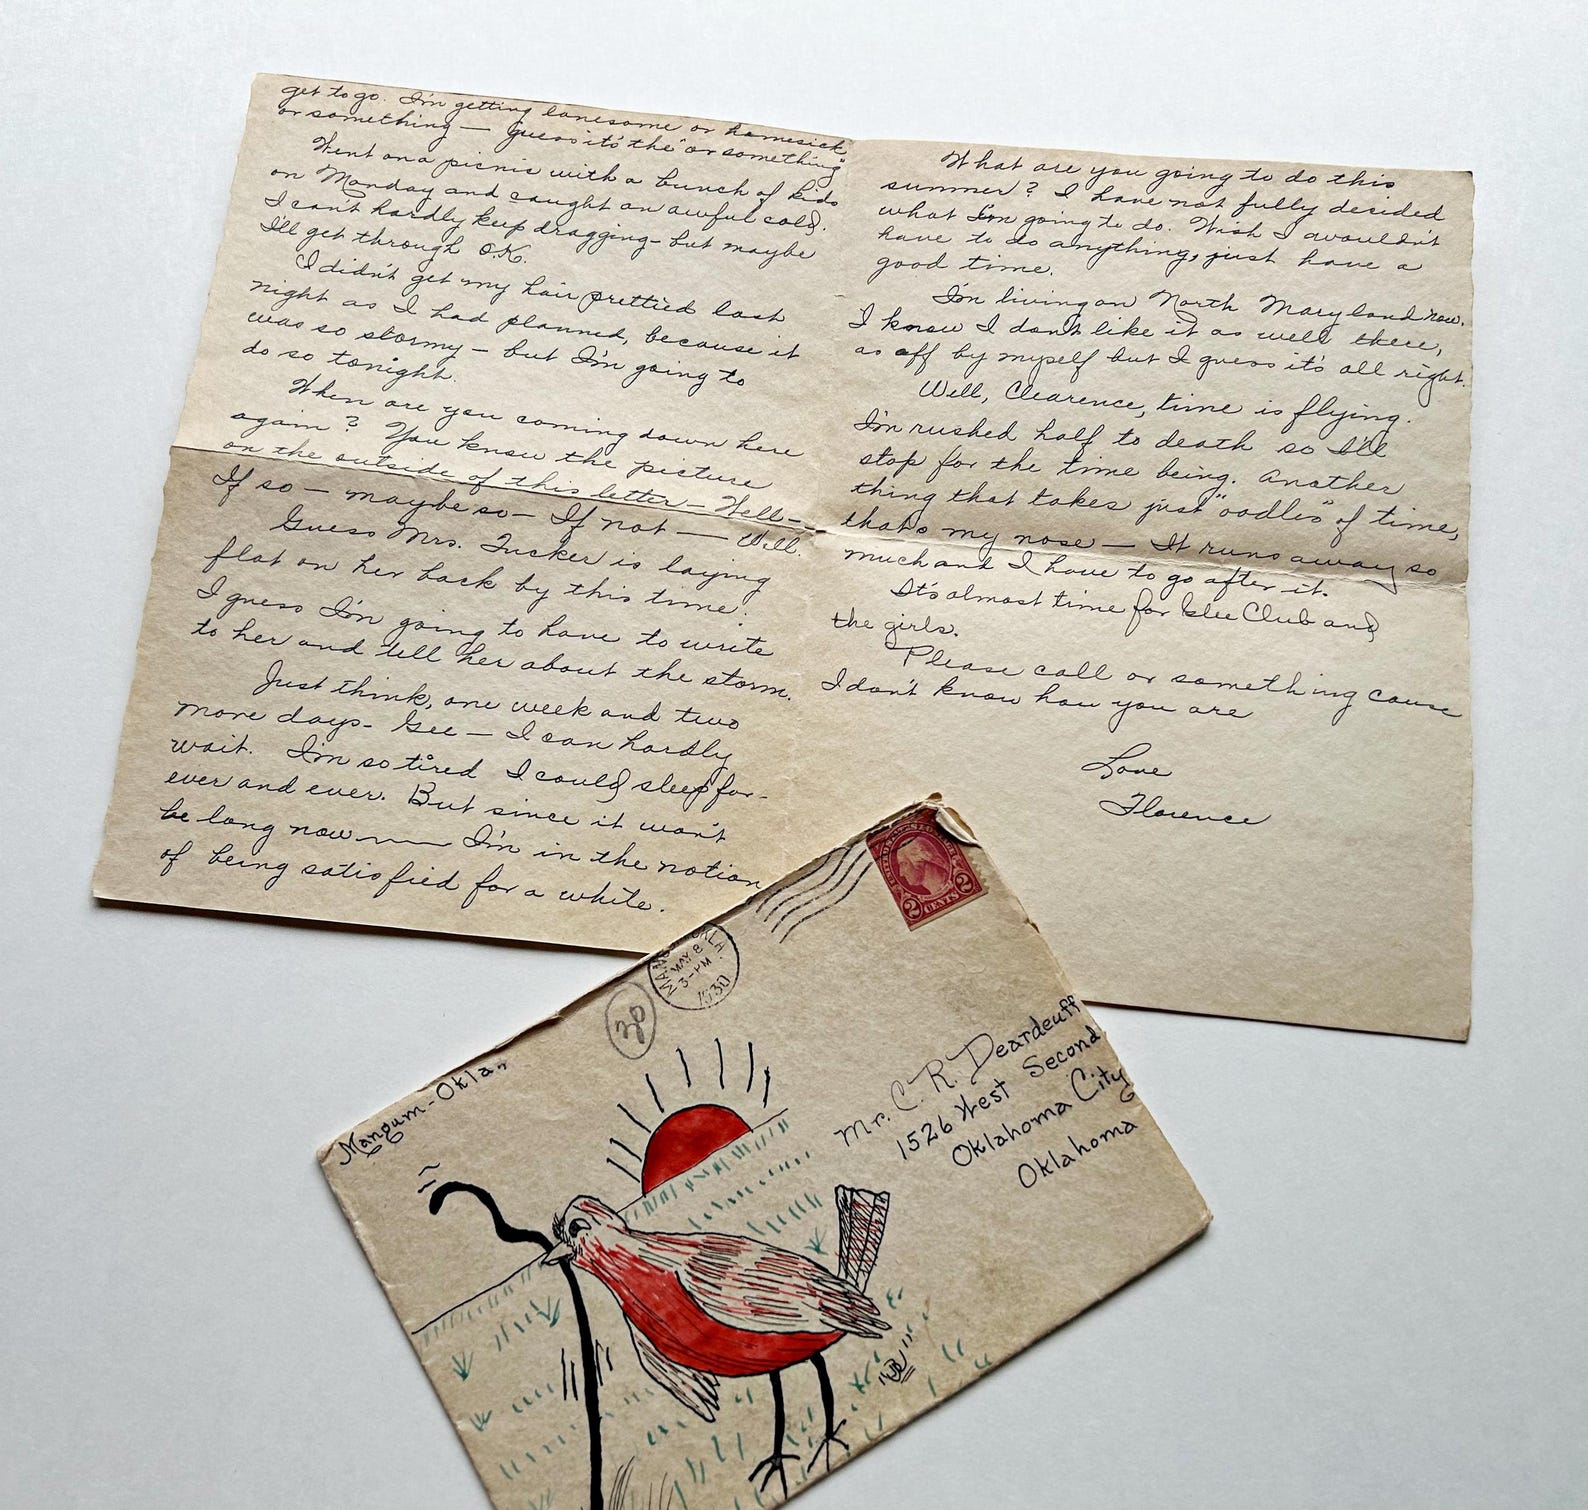 get to go. I'm getting lonesome or homesick
or something — guess it's the "or something"
Went on a picnic with a bunch of kids
on Monday and caught an awful cold.
I can't hardly keep dragging - but maybe
I'll get through O.K.
I didn't get my hair prettied last
night as I had planned, because it
was so stormy - but I'm going to
do so tonight.
When are you coming down here
again? You know the picture
on the outside of this letter - Well -
If so - maybe so - If not — Well.
Guess Mrs. Tucker is laying
flat on her back by this time.
I guess I'm going to have to write
to her and tell her about the storm.
Just think, one week and two
more days - Gee - I can hardly
wait. I'm so tired I could sleep for-
ever and ever. But since it won't
be long now — I'm in the notion
of being satisfied for a while.
What are you going to do this
summer? I have not fully decided
what I'm going to do. Wish I wouldn't
have to do anything, just have a
good time.
I'm living on North Maryland now.
I know I don't like it as well there,
as off by myself but I guess it's all right.
Well, Clearence, time is flying.
I'm rushed half to death so I'll
stop for the time being. Another
thing that takes just "oodles" of time,
thats my nose — It runs away so
much and I have to go after it.
It's almost time for Glee Club and
the girls.
Please call or something cause
I don't know how you are
Love
Florence
MAY 8
3-PM
1930
OKLA.
UNITED STATES POSTAGE
2 CENTS 2
30
Mangum - Okla.
Mr. C. R. Deardeuff
1526 West Second
Oklahoma City
Oklahoma